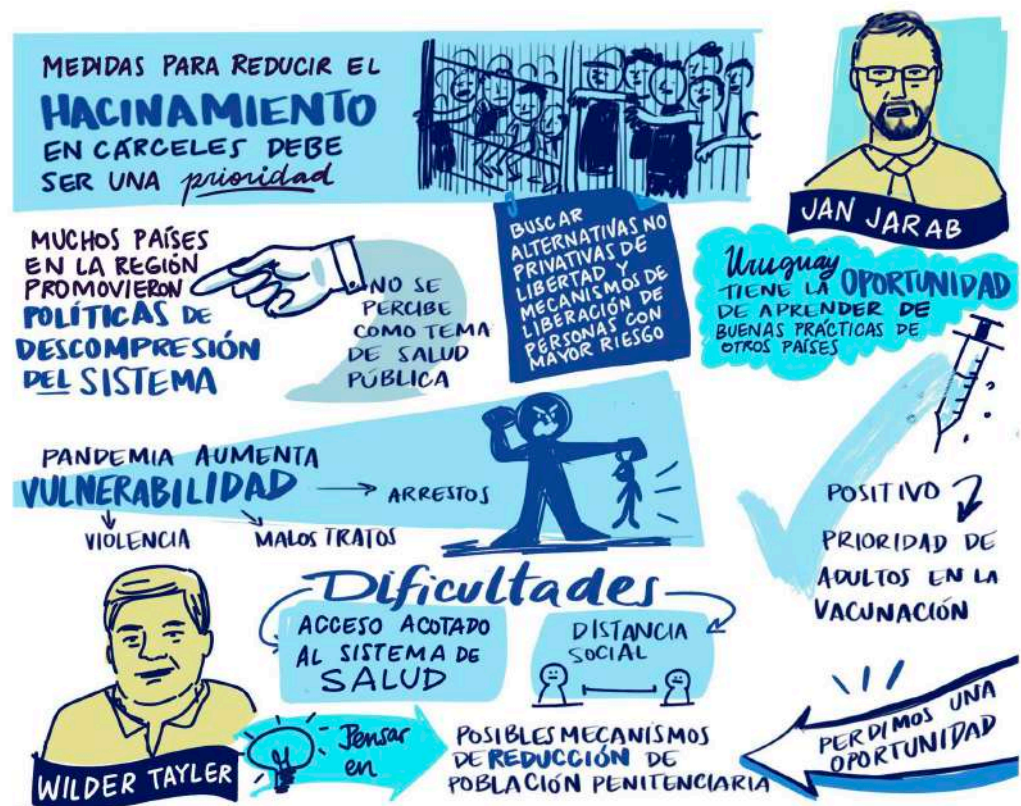 MEDIDAS PARA REDUCIR EL
HACINAMIENTO
EN CÁRCELES DEBE
SER UNA prioridad
JAN JARAB
MUCHOS PAÍSES
EN LA REGIÓN
PROMOVIERON
POLÍTICAS DE
DESCOMPRESIÓN
DEL SISTEMA
NO SE
PERCIBE
COMO TEMA
DE SALUD
PÚBLICA
BUSCAR
ALTERNATIVAS NO
PRIVATIVAS DE
LIBERTAD Y
MECANISMOS DE
LIBERACIÓN DE
PERSONAS CON
MAYOR RIESGO
Uruguay
TIENE LA OPORTUNIDAD
DE APRENDER DE
BUENAS PRÁCTICAS DE
OTROS PAÍSES
PANDEMIA AUMENTA
VULNERABILIDAD
ARRESTOS
VIOLENCIA
MALOS TRATOS
POSITIVO
PRIORIDAD DE
ADULTOS EN LA
VACUNACIÓN
Dificultades
ACCESO ACOTADO
AL SISTEMA DE
SALUD
DISTANCIA
SOCIAL
WILDER TAYLER
Pensar
en
POSIBLES MECANISMOS
DE REDUCCIÓN DE
POBLACIÓN PENITENCIARIA
PERDIMOS UNA
OPORTUNIDAD